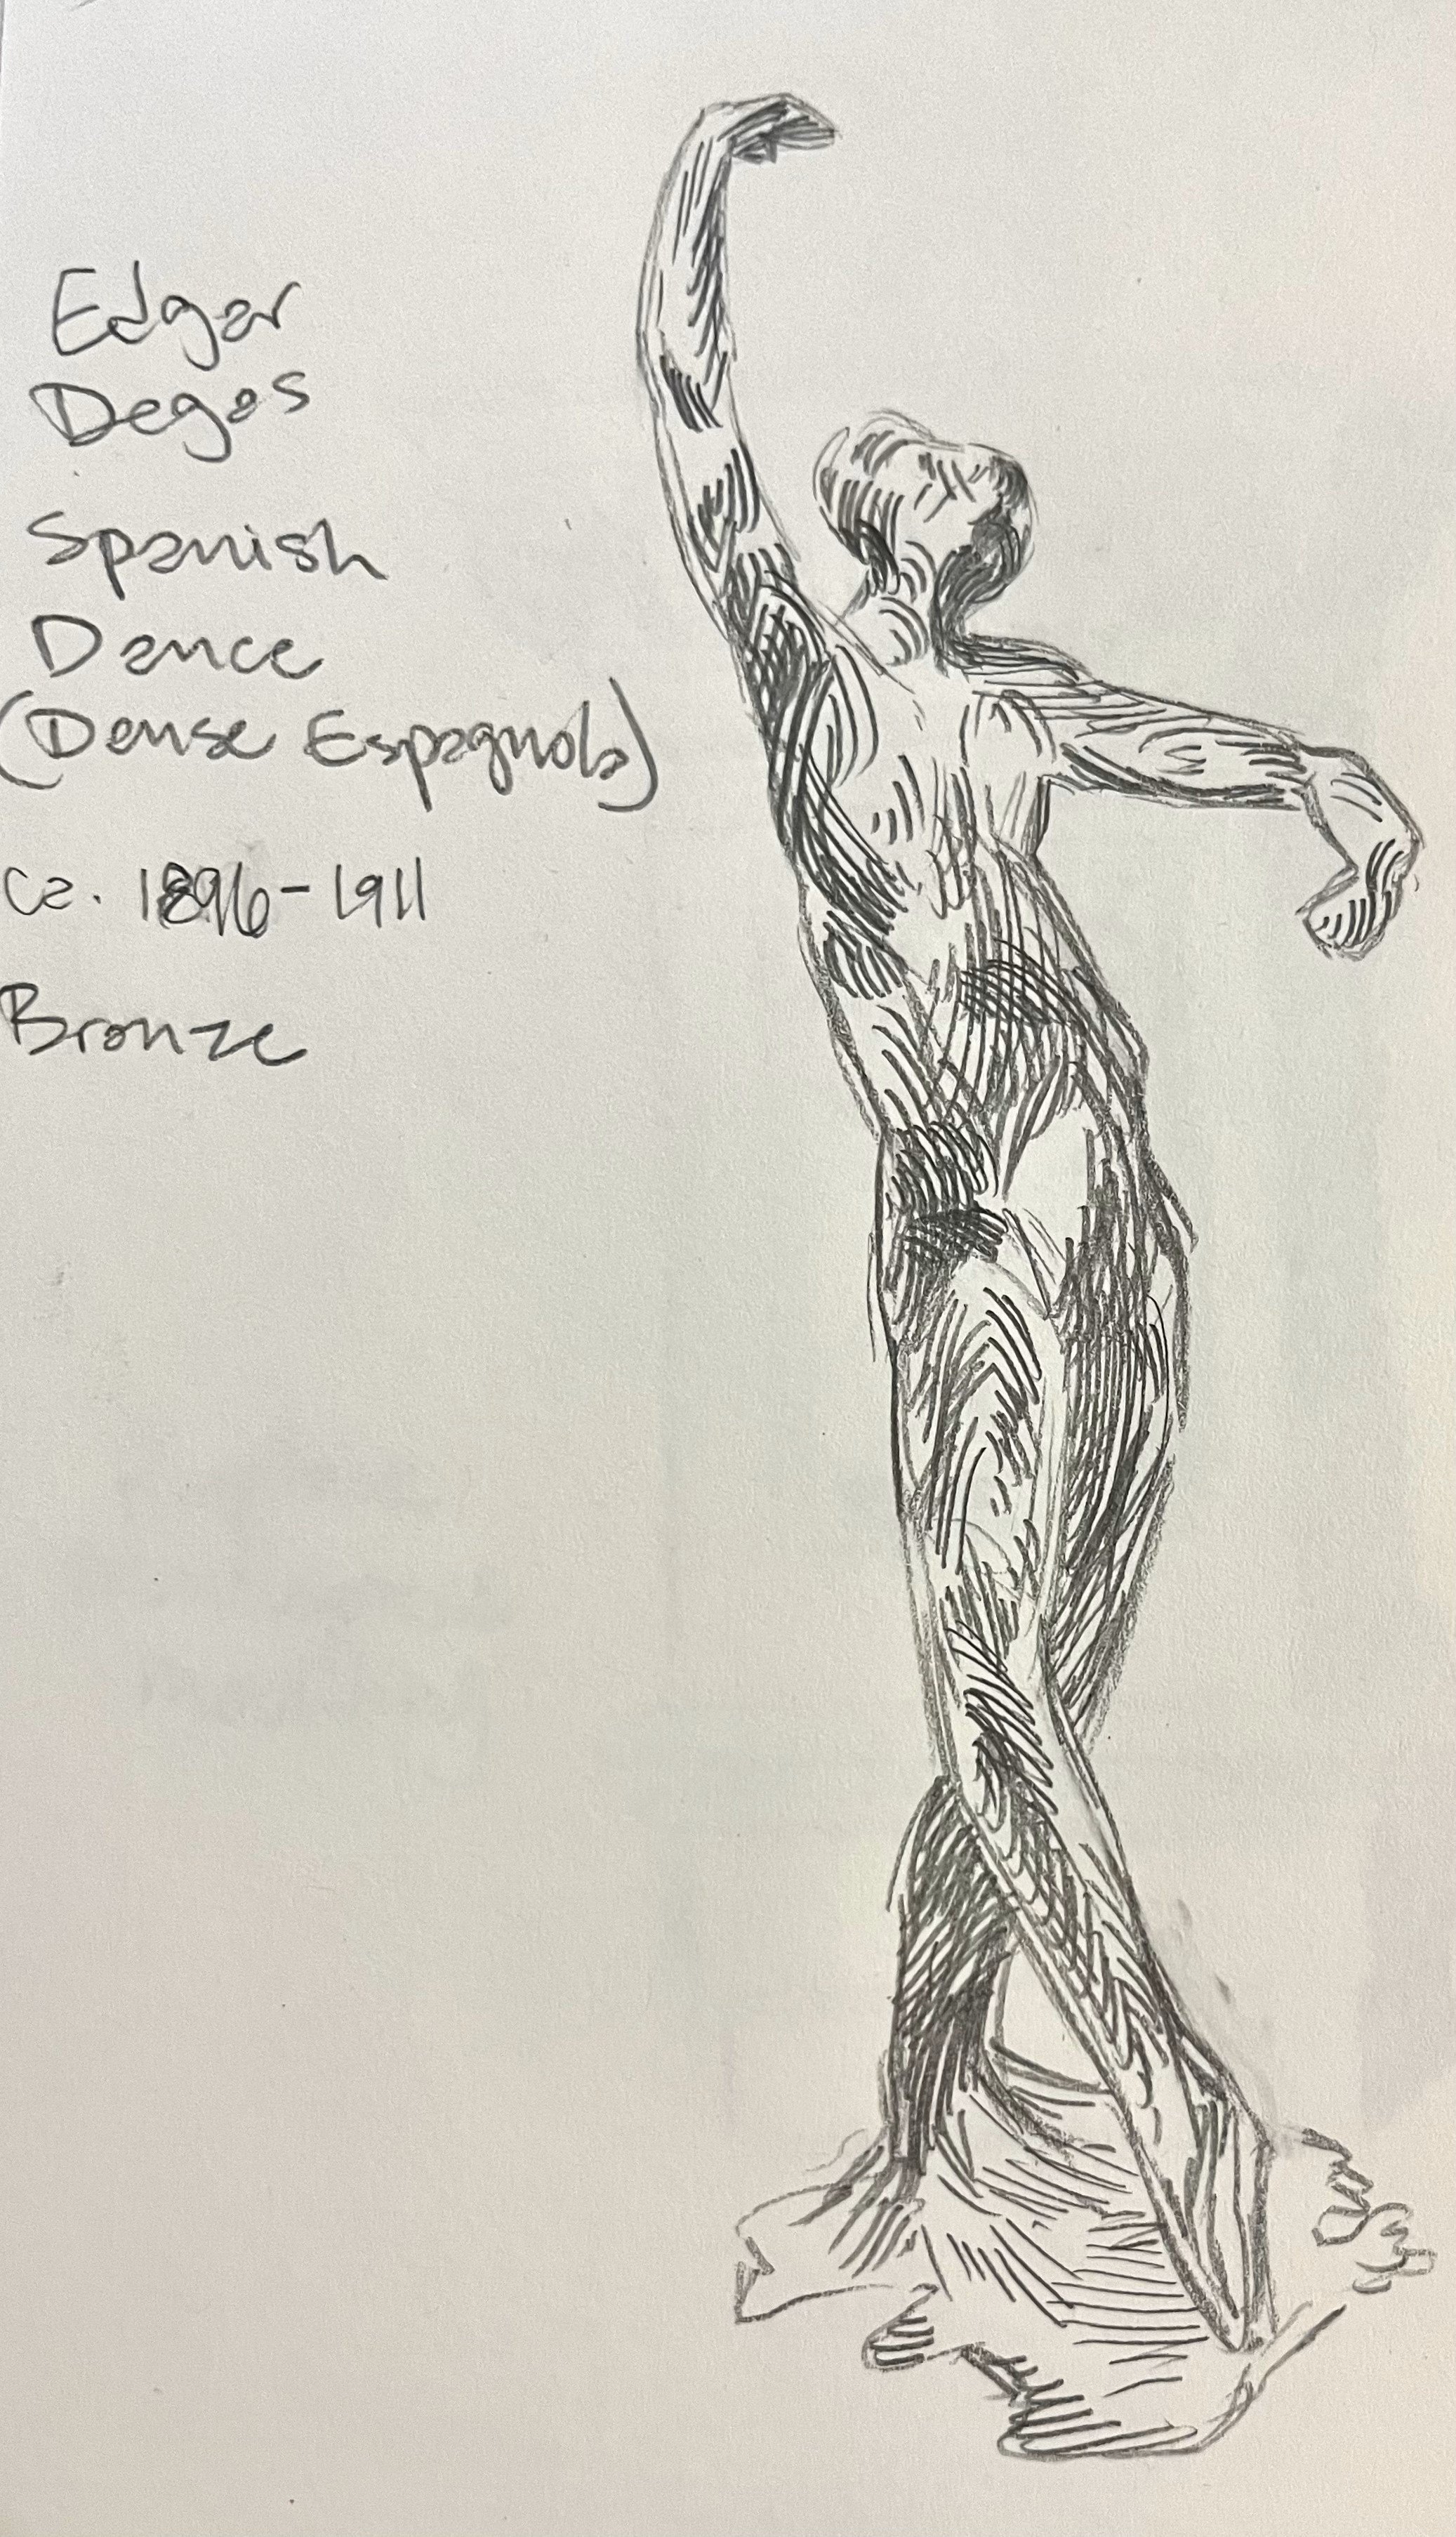 Edgar
Degas
Spanish
Dance
(Danse Espagnole)
ca. 1896-1911
Bronze